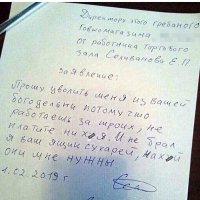 Директору этого гребаного
говномагазина
от работника торгового
зала Селиванова Е.П.
Заявление:
Прошу уволить меня из вашей
богодельни потому что
работаешь за троих, не
платите нихуя. И не брал
я ваш ящик сухарей, нахой
они мне нужны
1.02.2019г.